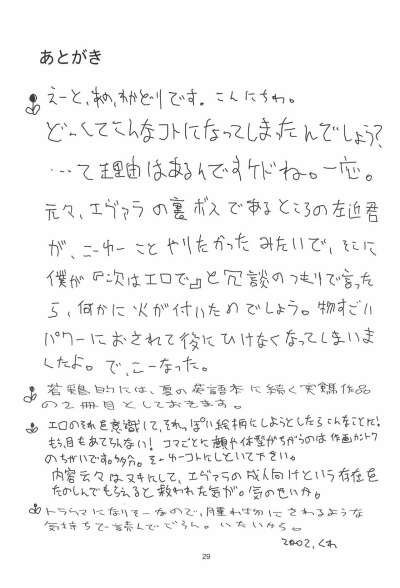 あとがき
えーと、あの、わかどりです。こんにちわ。
どーしてこんなコトになってしまったんでしょう?
…て理由はあるんですケドね。一応。
元々、エヴァラの裏ボスであるところの左近君
が、こーゆーことやりたかったみたいで、そこに
僕が『次はエロで』と冗談のつもりで言った
ら、何かに火が付いたのでしょう。物すごい
パワーにおされて後にひけなくなってしまいま
したよ。で、こーなった。
若鶏的には、夏の英語本に続く実験作品
の2冊目としておきます。
エロのそれを意識して、それっぽい絵柄にしようとしたらこんなことに!
もう、目もあてられない!コマごとに顔や体型がちがうのは作画カントク
のちがいです。多分。そーゆーコトにしといて下さい。
内容云々はヌキにして、エヴァラの成人向けという存在を
たのしんでもらえると救われた気が。気のせいか。
トラウマになりそーなので、腫れ物にさわるような
気持ちで読んでどうぞ。いたいから。
2002.くれ
29